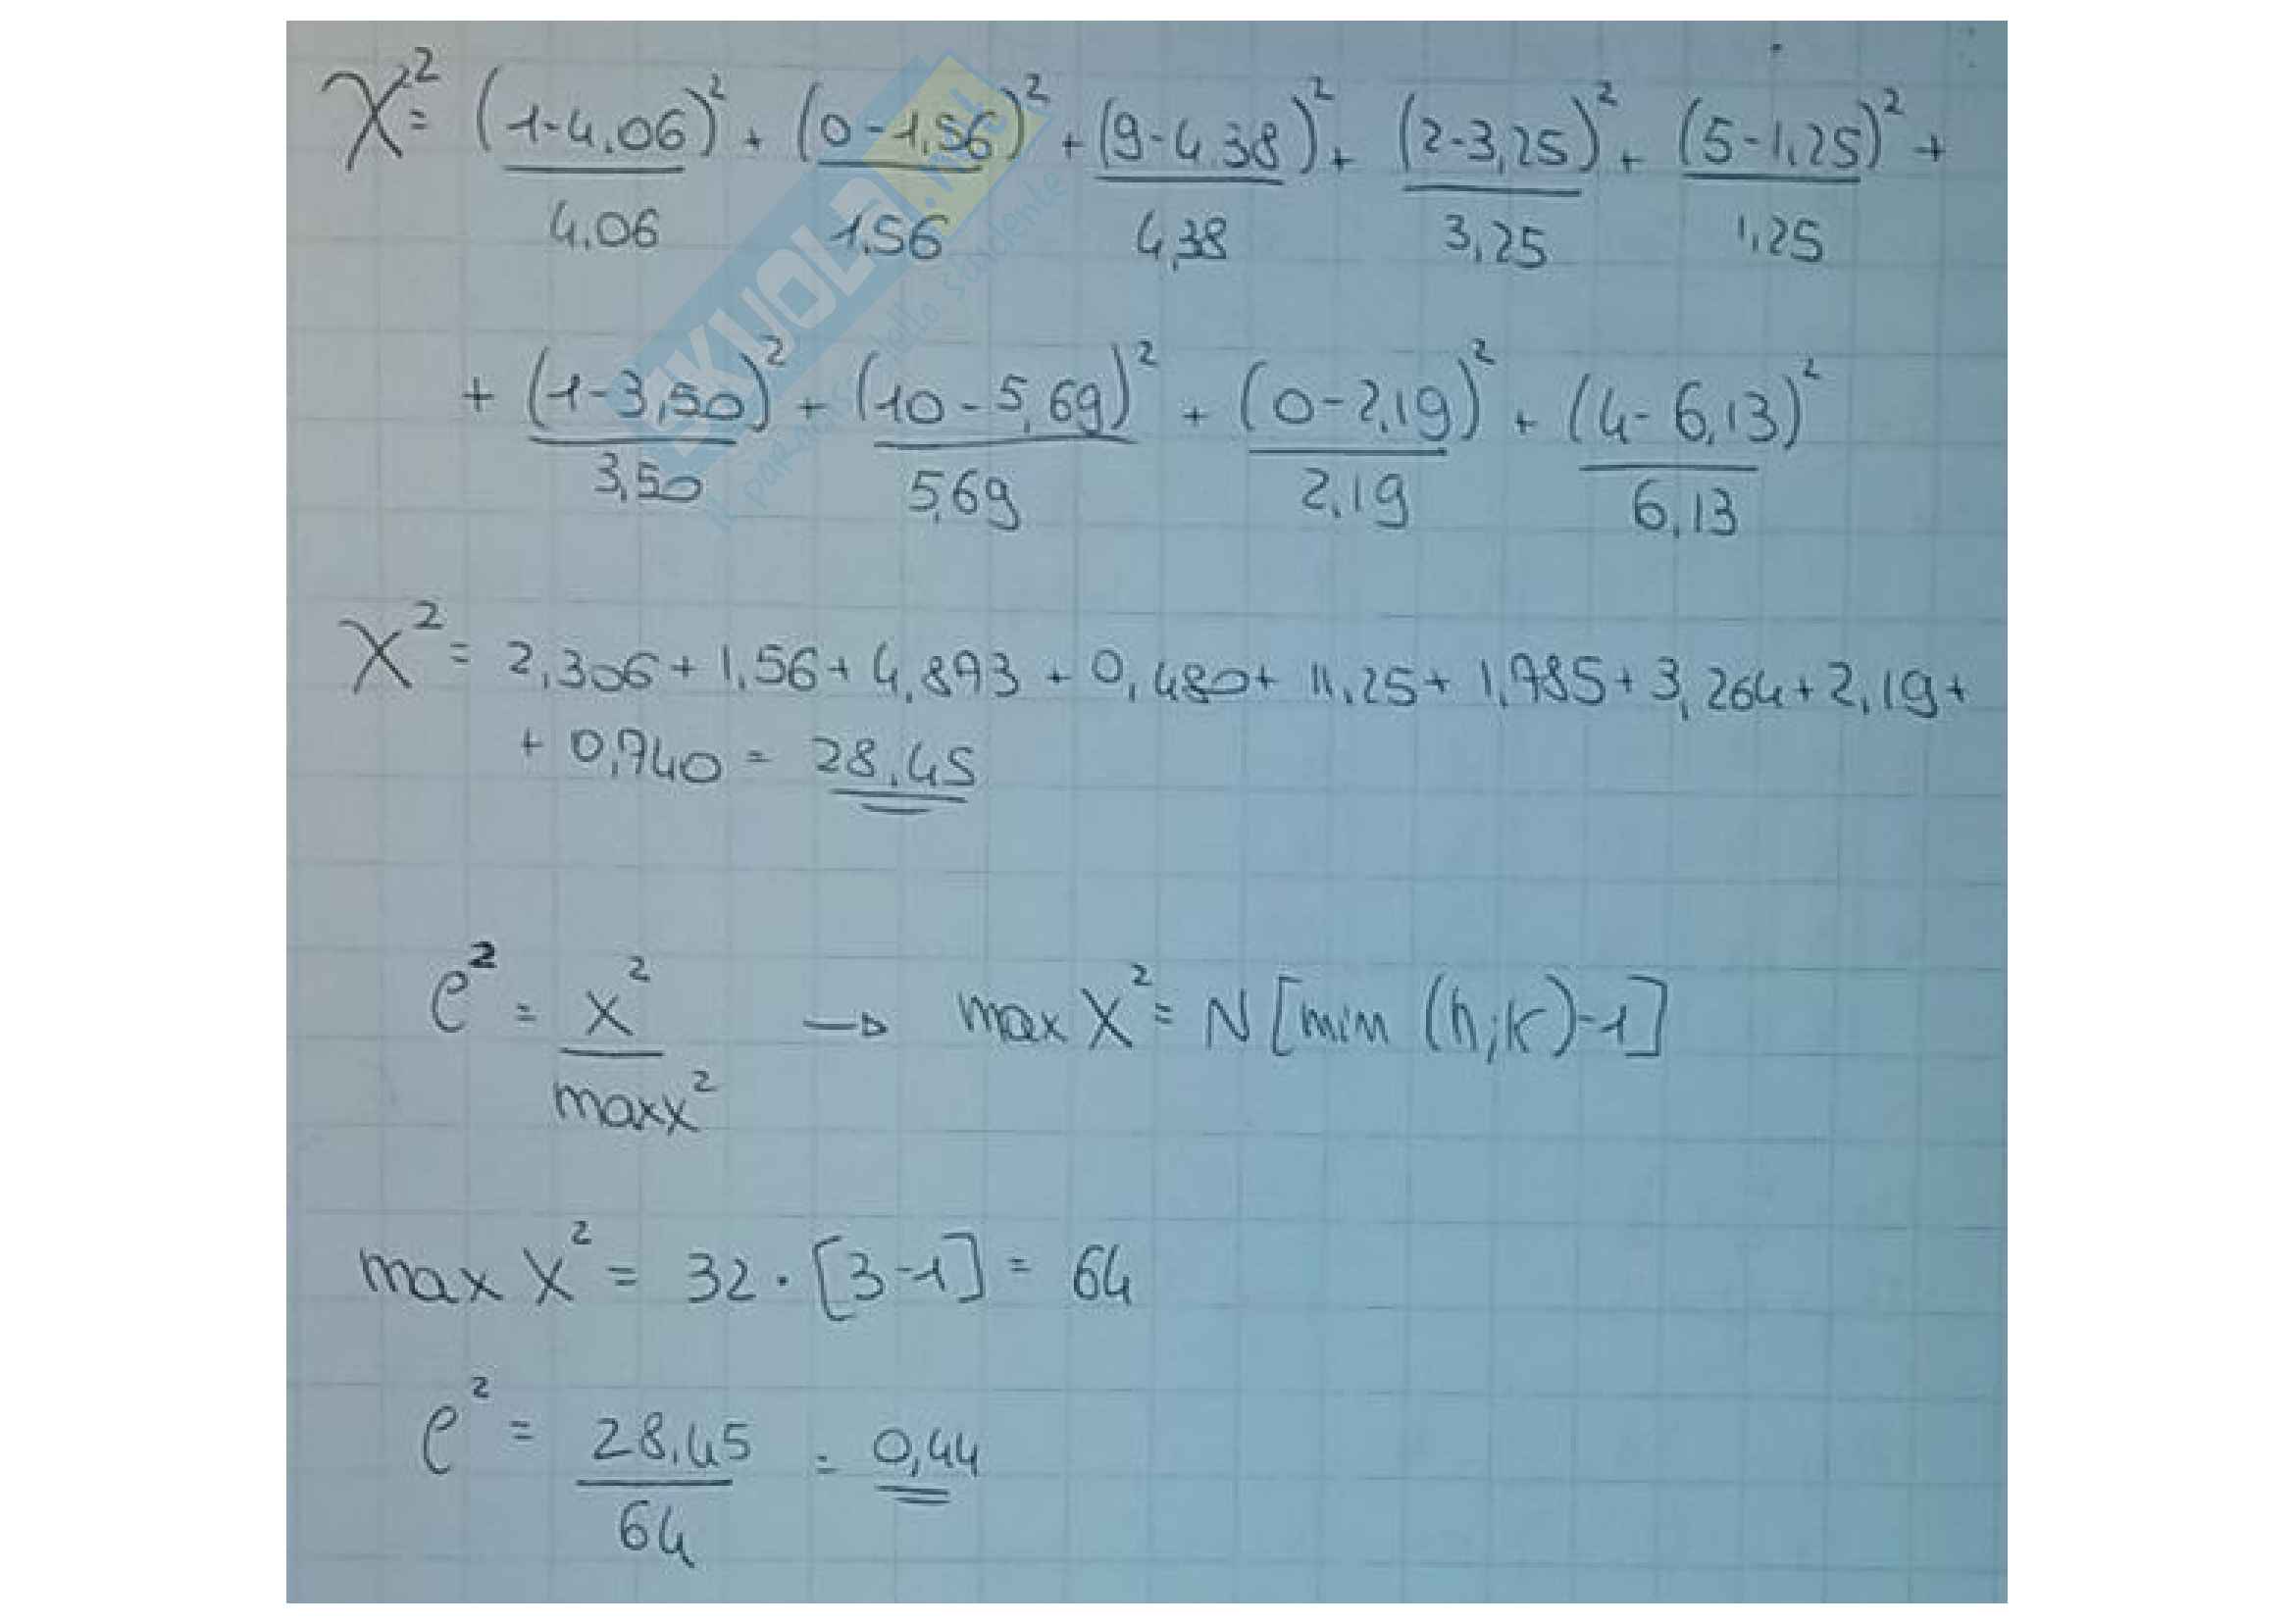 χ² = (1-4,06)²/4,06 + (0-1,56)²/1,56 + (9-4,38)²/4,38 + (2-3,25)²/3,25 + (5-1,25)²/1,25 +
+ (1-3,50)²/3,50 + (10-5,69)²/5,69 + (0-2,19)²/2,19 + (4-6,13)²/6,13
χ² = 2,306 + 1,56 + 4,873 + 0,480 + 11,25 + 1,785 + 3,264 + 2,19 +
+ 0,740 = 28,45
C² = X²/maxx² → max X² = N [min (h;k)-1]
max X² = 32 · [3-1] = 64
C² = 28,45/64 = 0,44
SKUOLA.net